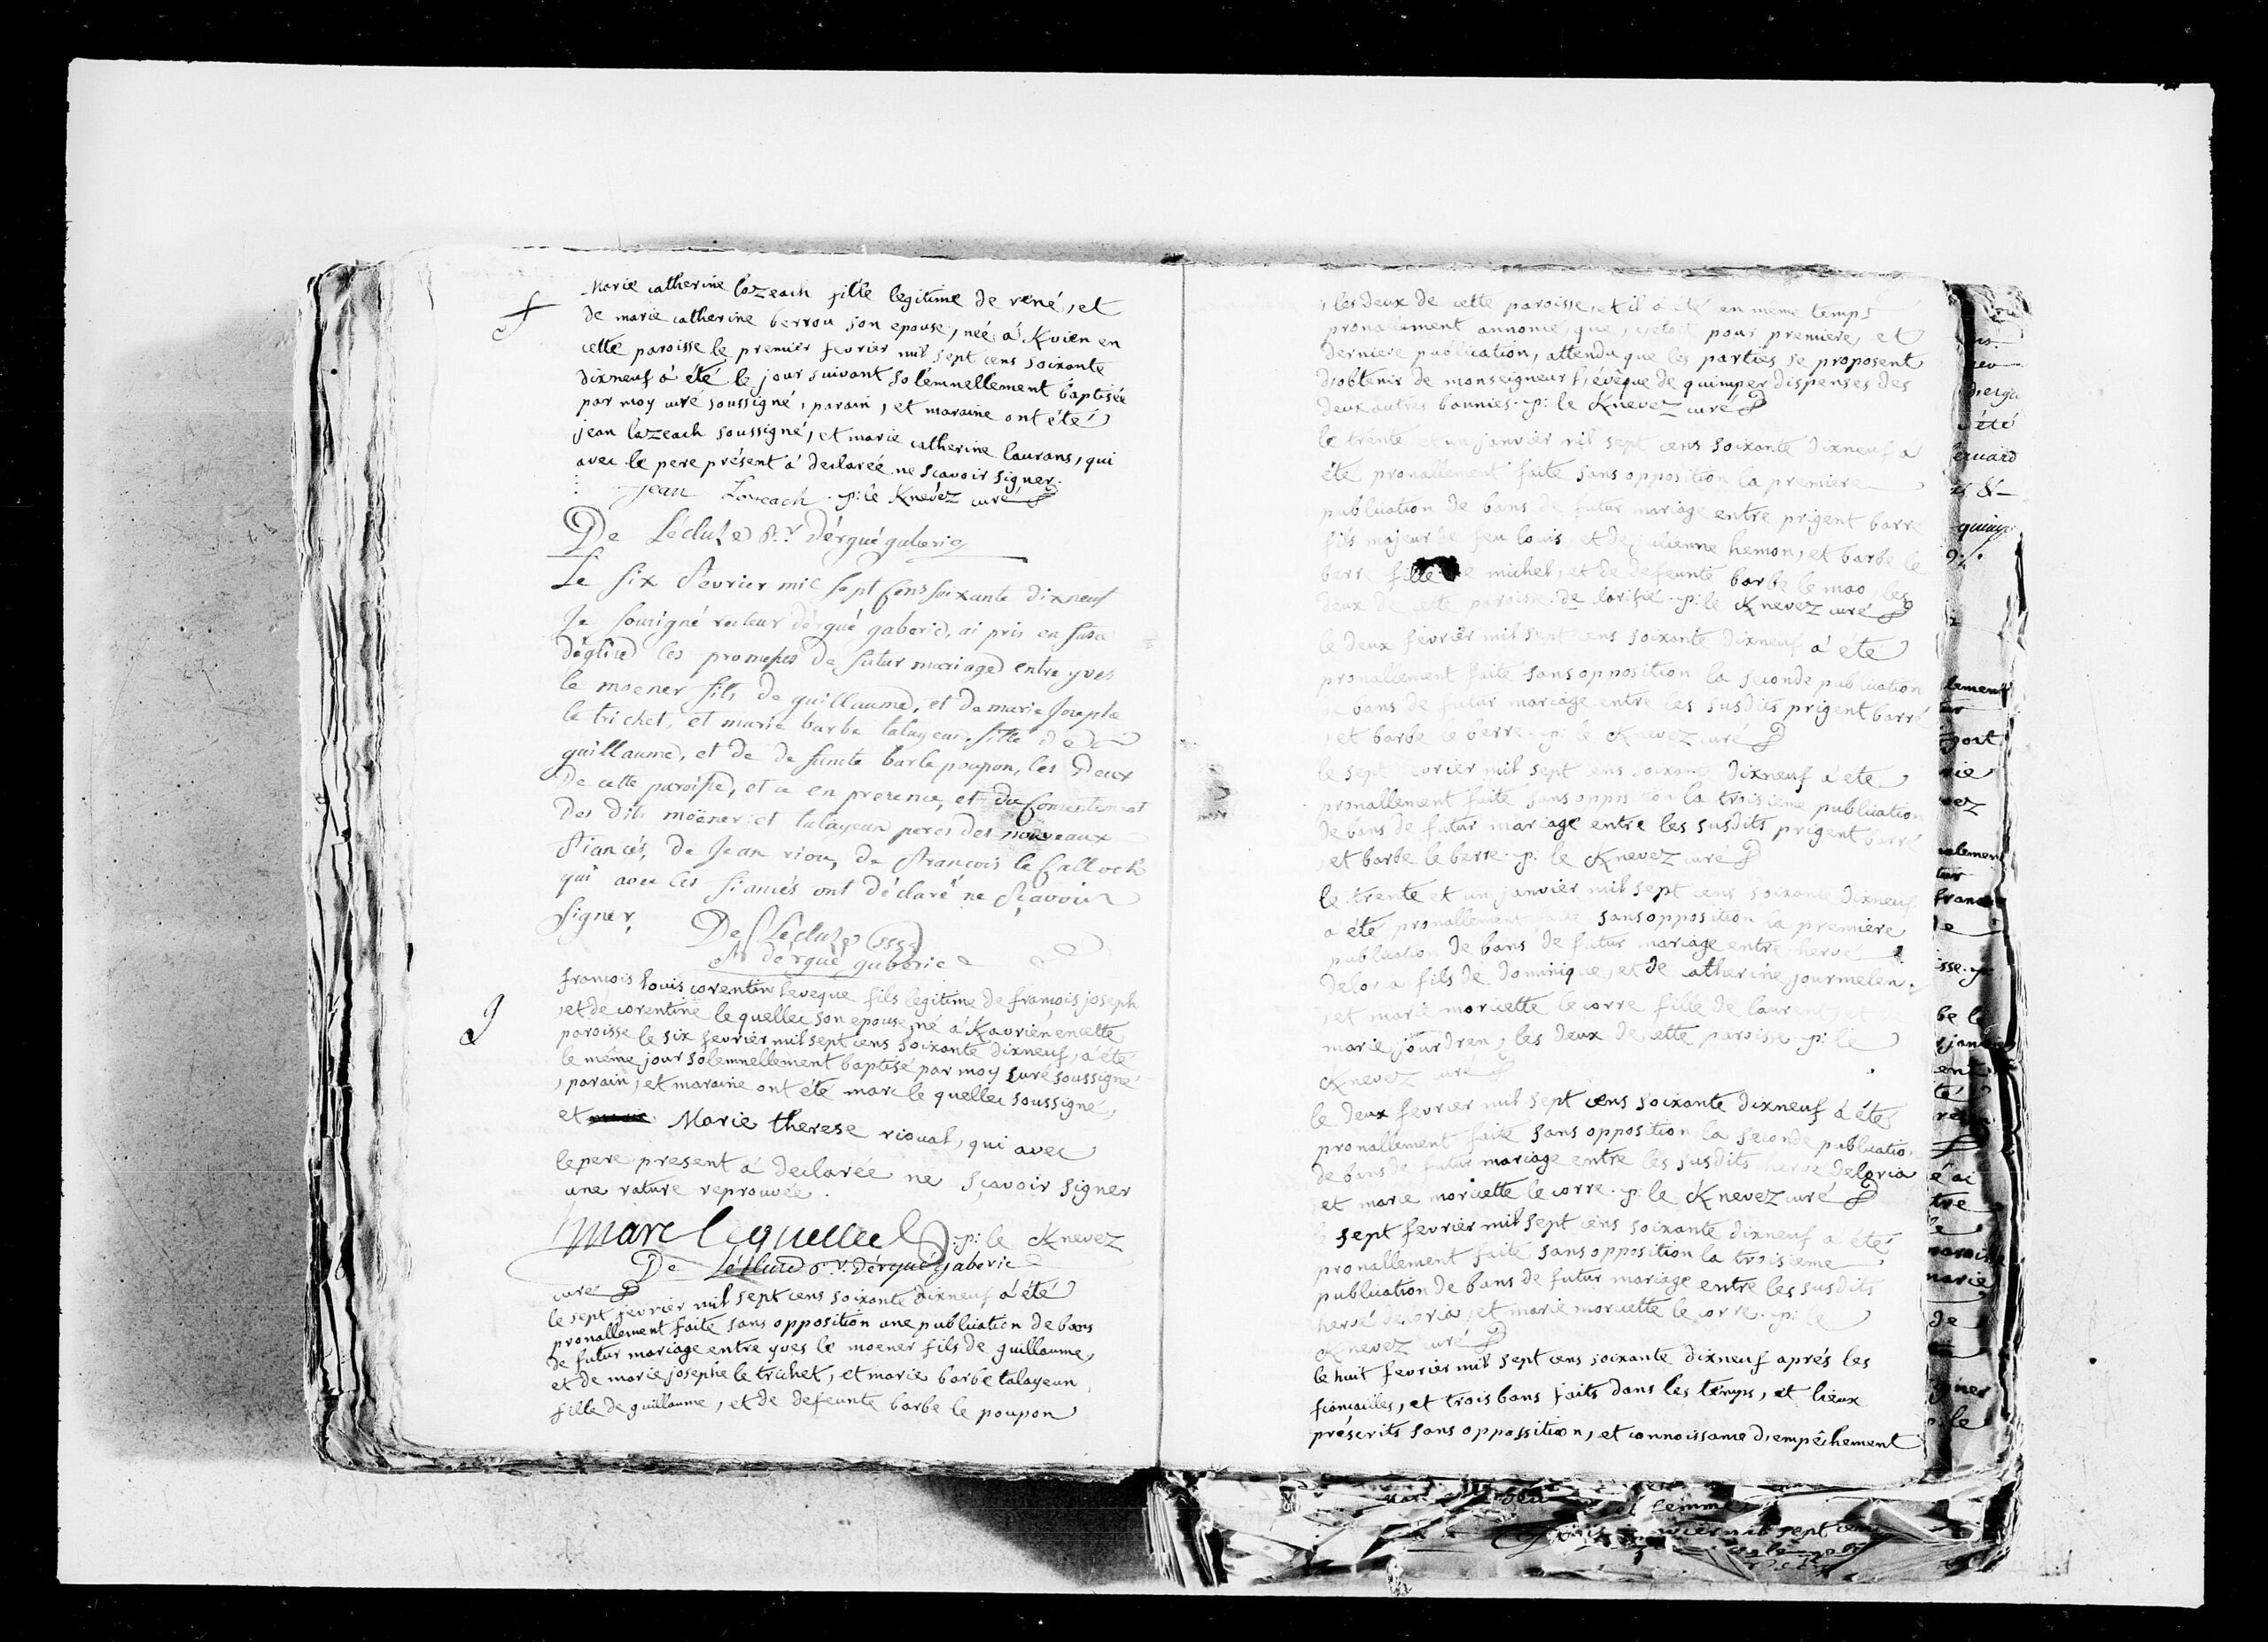 Marie catherine lozeach fille legitime de réné, et
de marie catherine berrou son epouse, neé á Kvien en
cette paroisse le premier fevrier mil sept cens soixante
dixneuf á été le jour suivant solémnellement baptisée
par moy curé soussigné, parain, et maraine ont été
jean lazeach soussigné, et marie catherine laurans, qui
avec le pere présent á declarée ne scavoir signer.
jean Lozeach . p: le Knevez curé
De Lécluze Rr. d'ergué gaberic
Le six fevrier mil sept cens soixante dixneuf
Je sousigné recteur d'ergué gaberic, ai pris en face
d'église les promesses de futur mariage entre yves
le moener fils de guillaume, et de marie Josephe
le trichet, et marie barbe talayeun, fille de
guillaume, et de defunte barbe poupon, les deux
de cette paroisse, et ce en presence, et du consentement
des dits moëner et talayeun peres des nouveaux
fiancés, de Jean riou, de francois le Calloch
qui avec les fiancés ont déclaré ne sçavoir
signer, De Lécluze
Rr d'ergué gaberic
francois louis corentin leveque fils legitime de francois joseph
, et de corentine le quellec son epouse, né á Kaurien en cette
paroisse le six fevrier mil sept cens soixante dixneuf, á été
le même jour solemnellement baptisé par moy curé soussigné
, parain, et maraine ont été marc le quellec soussigné,
et Marie therese rioual, qui avec
le pere present á declarée ne sçavoir signer
une rature reprouvée.
Marc le quellec p: le Knevez
De Lécluze Rr. d'ergué gaberic
curé
le sept fevrier mil sept cens soixante dixneuf á été
pronallement faite sans opposition une publication de bans
de futur mariage entre yves le moener fils de guillaume,
et de marie josephe le trichet, et marie barbe talayeun
fille de guillaume, et de defeunte barbe le poupon
, les deux de cette paroisse, et il á été en même temps
pronallement annoncé, que, c'etoit pour premiere, et
derniere publication, attendu que les parties se proposent
d'obtenir de monseigneur l'évêque de quimper dispenses des
deux autres bannies. p: le Knevez curé
le trente et un janvier mil sept cens soixante dixneuf a
été pronallement faite sans opposition la premiere
publication de bans de futur mariage entre prigent barre
fils majeur de feu louis, et de julienne hemon, et barbe le
berre fille de michel, et de defeunte barbe le mao, les
deux de cette paroisse. de clarifié. p: le Knevez curé
le deux fevrier mil sept cens soixante dixneuf á été
pronallement faite sans opposition la seconde publication
de bans de futur mariage entre les susdits prigent barré
, et barbe le berre. p: le Knevez curé
le sept fevrier mil sept cens soixante dixneuf á été
pronallement faite sans opposition la troisieme publication
de bans de futur mariage entre les susdits prigent barré
, et barbe le berre. p: le Knevez curé
le trente et un janvier mil sept cens soixante dixneuf
a été pronallement faite sans opposition la premiere
publication de bans de futur mariage entre hervé
deloria fils de dominique, et de catherine jourmelen.
, et marie moricette le corre fille de laurent, et
marie jourdren, les deux de cette paroisse. p: le
Knevez curé
le deux fevrier mil sept cens soixante dixneuf á été
pronallement faite sans opposition la seconde publication
de bans de futur mariage entre les susdits hervé deloria
et marie moricette le corre. p: le Knevez curé
le sept fevrier mil sept cens soixante dixneuf a été
pronallement faite sans opposition la troisieme
publication de bans de futur mariage entre les susdits
hervé deloria, et marie moricette le corre. p: le
Knevez curé
le huit fevrier mil sept cens soixante dixneuf aprés les
fiançailles, et trois bans faits dans les temps, et lieux
préscrits sans oppossition, et connoissance d'empêchement